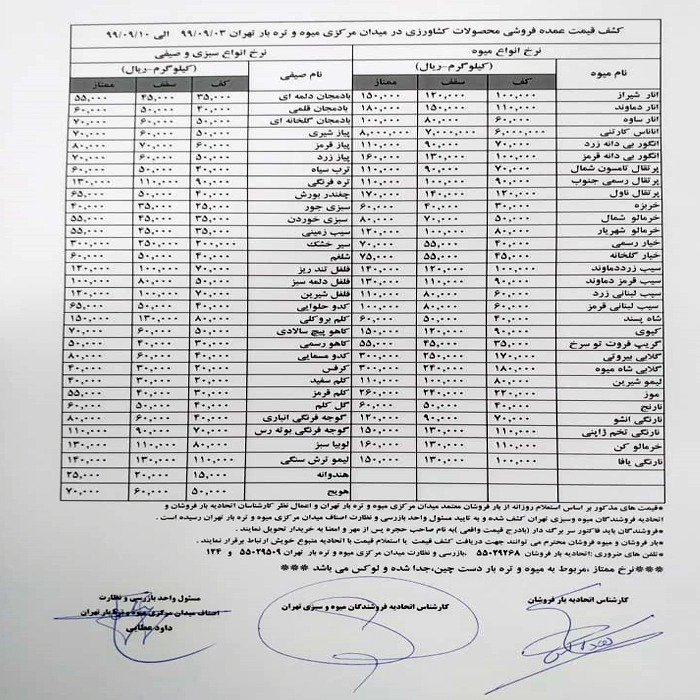 کشف قیمت عمده فروشی محصولات کشاورزی در میدان مرکزی میوه و تره بار تهران ۹۹/۰۹/۰۳ الی ۹۹/۰۹/۱۰
نرخ انواع میوه نرخ انواع سبزی و صیفی
نام میوه (کیلوگرم-ریال) نام صیفی (کیلوگرم-ریال)
کف سقف ممتاز کف سقف ممتاز
انار شیراز ۱۰۰,۰۰۰ ۱۲۰,۰۰۰ ۱۵۰,۰۰۰ بادمجان دلمه ای ۳۵,۰۰۰ ۴۵,۰۰۰ ۵۵,۰۰۰
انار دماوند ۱۱۰,۰۰۰ ۱۵۰,۰۰۰ ۱۸۰,۰۰۰ بادمجان قلمی ۴۰,۰۰۰ ۵۰,۰۰۰ ۶۰,۰۰۰
انار ساوه ۶۰,۰۰۰ ۸۰,۰۰۰ ۱۰۰,۰۰۰ بادمجان گلخانه ای ۵۰,۰۰۰ ۶۰,۰۰۰ ۷۰,۰۰۰
آناناس کارتنی ۶,۰۰۰,۰۰۰ ۷,۰۰۰,۰۰۰ ۸,۰۰۰,۰۰۰ پیاز شیری ۵۰,۰۰۰ ۶۰,۰۰۰ ۷۰,۰۰۰
انگور بی دانه زرد ۷۰,۰۰۰ ۹۰,۰۰۰ ۱۱۰,۰۰۰ پیاز قرمز ۶۰,۰۰۰ ۷۰,۰۰۰ ۸۰,۰۰۰
انگور بی دانه قرمز ۱۰۰,۰۰۰ ۱۳۰,۰۰۰ ۱۶۰,۰۰۰ پیاز زرد ۵۰,۰۰۰ ۶۰,۰۰۰ ۷۰,۰۰۰
پرتقال تامسون شمال ۷۰,۰۰۰ ۹۰,۰۰۰ ۱۱۰,۰۰۰ ترب سیاه ۴۰,۰۰۰ ۵۰,۰۰۰ ۶۰,۰۰۰
پرتقال رسمی جنوب ۹۰,۰۰۰ ۱۱۰,۰۰۰ تره فرنگی ۹۰,۰۰۰ ۱۱۰,۰۰۰ ۱۳۰,۰۰۰
پرتقال ناول ۱۲۰,۰۰۰ ۱۴۰,۰۰۰ ۱۷۰,۰۰۰ چغندر بورش ۴۰,۰۰۰ ۵۰,۰۰۰ ۶۵,۰۰۰
خربزه ۳۰,۰۰۰ ۴۰,۰۰۰ ۶۰,۰۰۰ سبزی جور ۲۵,۰۰۰ ۳۵,۰۰۰ ۴۰,۰۰۰
خرمالو شمال ۵۰,۰۰۰ ۷۰,۰۰۰ ۸۰,۰۰۰ سبزی خوردن ۳۵,۰۰۰ ۴۵,۰۰۰ ۵۵,۰۰۰
خرمالو شهریار ۸۰,۰۰۰ ۱۰۰,۰۰۰ ۱۲۰,۰۰۰ سیب زمینی ۳۵,۰۰۰ ۴۵,۰۰۰ ۵۵,۰۰۰
خیار رسمی ۴۰,۰۰۰ ۵۵,۰۰۰ ۷۰,۰۰۰ سیر خشک ۲۰۰,۰۰۰ ۲۵۰,۰۰۰ ۳۰۰,۰۰۰
خیار گلخانه ۴۵,۰۰۰ ۵۵,۰۰۰ ۷۵,۰۰۰ شلغم ۴۰,۰۰۰ ۵۰,۰۰۰ ۶۰,۰۰۰
سیب زرددماوند ۱۰۰,۰۰۰ ۱۲۰,۰۰۰ ۱۴۰,۰۰۰ فلفل تند ریز ۷۰,۰۰۰ ۱۰۰,۰۰۰ ۱۲۰,۰۰۰
سیب قرمز دماوند ۹۰,۰۰۰ ۱۱۰,۰۰۰ ۱۳۰,۰۰۰ فلفل دلمه سبز ۵۰,۰۰۰ ۸۰,۰۰۰ ۱۰۰,۰۰۰
سیب لبنانی زرد ۶۰,۰۰۰ ۸۰,۰۰۰ ۱۱۰,۰۰۰ فلفل شیرین ۷۰,۰۰۰ ۱۰۰,۰۰۰ ۱۲۰,۰۰۰
سیب لبنانی قرمز ۶۰,۰۰۰ ۸۰,۰۰۰ ۱۰۰,۰۰۰ کدو حلوایی ۴۰,۰۰۰ ۵۰,۰۰۰ ۶۵,۰۰۰
شاه پسند ۴۰,۰۰۰ ۵۰,۰۰۰ ۶۰,۰۰۰ کلم بروکلی ۸۰,۰۰۰ ۱۳۰,۰۰۰ ۱۵۰,۰۰۰
کیوی ۹۰,۰۰۰ ۱۲۰,۰۰۰ ۱۵۰,۰۰۰ کاهو پیچ سالادی ۵۰,۰۰۰ ۶۰,۰۰۰ ۷۰,۰۰۰
گریپ فروت تو سرخ ۳۵,۰۰۰ ۴۵,۰۰۰ ۵۵,۰۰۰ کاهو رسمی ۳۰,۰۰۰ ۴۰,۰۰۰ ۵۰,۰۰۰
گلابی بیروتی ۱۷۰,۰۰۰ ۲۵۰,۰۰۰ ۳۰۰,۰۰۰ کدو مسمایی ۴۰,۰۰۰ ۶۰,۰۰۰ ۸۰,۰۰۰
گلابی شاه میوه ۱۸۰,۰۰۰ ۲۴۰,۰۰۰ ۳۰۰,۰۰۰ کرفس ۲۰,۰۰۰ ۳۰,۰۰۰ ۴۰,۰۰۰
لیمو شیرین ۸۰,۰۰۰ ۱۰۰,۰۰۰ ۱۱۰,۰۰۰ کلم سفید ۲۰,۰۰۰ ۳۰,۰۰۰ ۴۰,۰۰۰
موز ۲۲۰,۰۰۰ ۲۴۰,۰۰۰ ۲۶۰,۰۰۰ کلم قرمز ۳۰,۰۰۰ ۴۰,۰۰۰ ۵۵,۰۰۰
نارنج ۴۰,۰۰۰ ۵۰,۰۰۰ ۶۰,۰۰۰ گل کلم ۴۰,۰۰۰ ۵۰,۰۰۰ ۶۰,۰۰۰
نارنگی انشو ۷۰,۰۰۰ ۹۰,۰۰۰ ۱۲۰,۰۰۰ گوجه فرنگی انباری ۴۰,۰۰۰ ۶۰,۰۰۰ ۸۰,۰۰۰
نارنگی تخم ژاپنی ۱۱۰,۰۰۰ ۱۳۰,۰۰۰ ۱۵۰,۰۰۰ گوجه فرنگی بوته رس ۷۰,۰۰۰ ۹۰,۰۰۰ ۱۱۰,۰۰۰
خرمالو کن ۱۱۰,۰۰۰ ۱۳۰,۰۰۰ ۱۶۰,۰۰۰ لوبیا سبز ۸۰,۰۰۰ ۱۱۰,۰۰۰ ۱۳۰,۰۰۰
نارنگی یافا ۱۰۰,۰۰۰ ۱۳۰,۰۰۰ ۱۵۰,۰۰۰ لیمو ترش سنگی ۱۱۰,۰۰۰ ۱۳۰,۰۰۰ ۱۴۰,۰۰۰
هندوانه ۱۵,۰۰۰ ۲۰,۰۰۰ ۲۵,۰۰۰
هویج ۵۰,۰۰۰ ۶۰,۰۰۰ ۷۰,۰۰۰
*قیمت های مذکور بر اساس استعلام روزانه از بار فروشان معتمد میدان مرکزی میوه و تره بار تهران و اعمال نظر کارشناسان اتحادیه بار فروشان و
اتحادیه فروشندگان میوه وسبزی تهران کشف شده و به تایید مسئول واحد بازرسی و نظارت اصناف میدان مرکزی میوه و تره بار تهران رسیده است .
*فروشندگان باید فاکتور سر برگ دار (بادرج قیمت واقعی )به نام صاحب حجره پس از مهر و امضا به خریدار تحویل نمایند .
*بار فروشان و میوه فروشان محترم می توانند جهت دریافت کشف قیمت یا استعلام قیمت با اتحادیه متبوع خویش ارتباط برقرار نمایند .
*تلفن های ضروری :اتحادیه بار فروشان ۵۵۰۲۹۲۶۸ ،بازرسی و نظارت میدان مرکزی میوه و تره بار تهران ۵۵۰۲۹۵۰۹ و ۱۲۴
***نرخ ممتاز ،مربوط به میوه و تره بار دست چین،جدا شده و لوکس می باشد ***
کارشناس اتحادیه بار فروشان کارشناس اتحادیه فروشندگان میوه و سبزی تهران مسئول واحد بازرسی و نظارت
اصناف میدان مرکزی میوه و تره بار تهران
داود عطایی